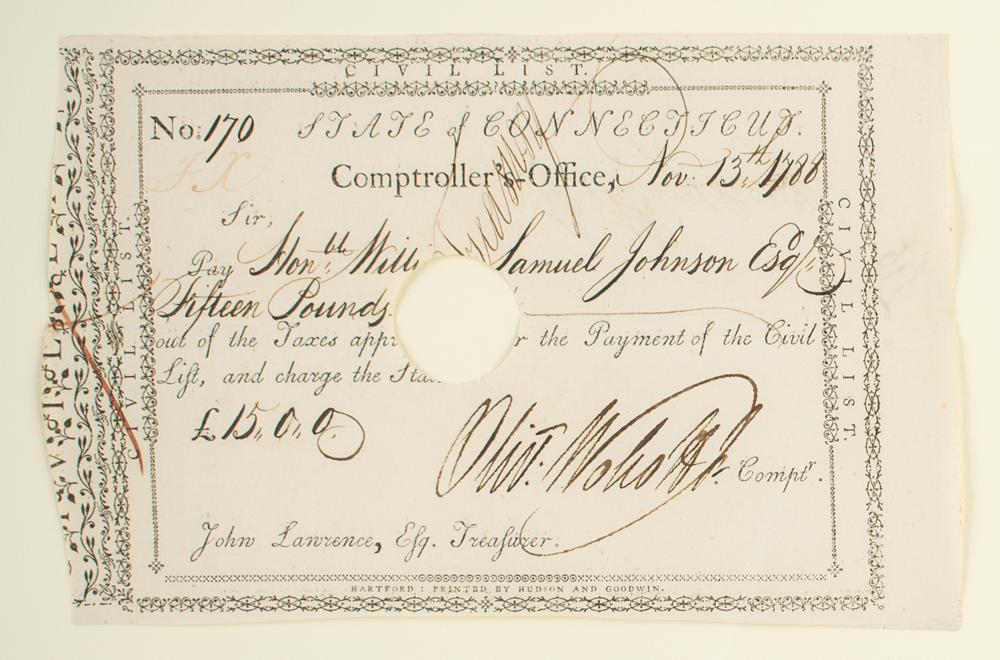 CIVIL LIST.
No: 170 STATE of CONNECTICUT.
Comptroller's-Office, Nov. 13.th 1788
Sir,
Pay Hon.ble Willi Samuel Johnson Esq.
Fifteen Pounds.
out of the Taxes appr r the Payment of the Civil
List, and charge the Stat
£15,,0,,0.
Oliv. Wolcott Jr. Comptr.
John Lawrence, Esq. Treasurer.
HARTFORD: PRINTED BY HUDSON AND GOODWIN.
CIVIL LIST.
CIVIL LIST.